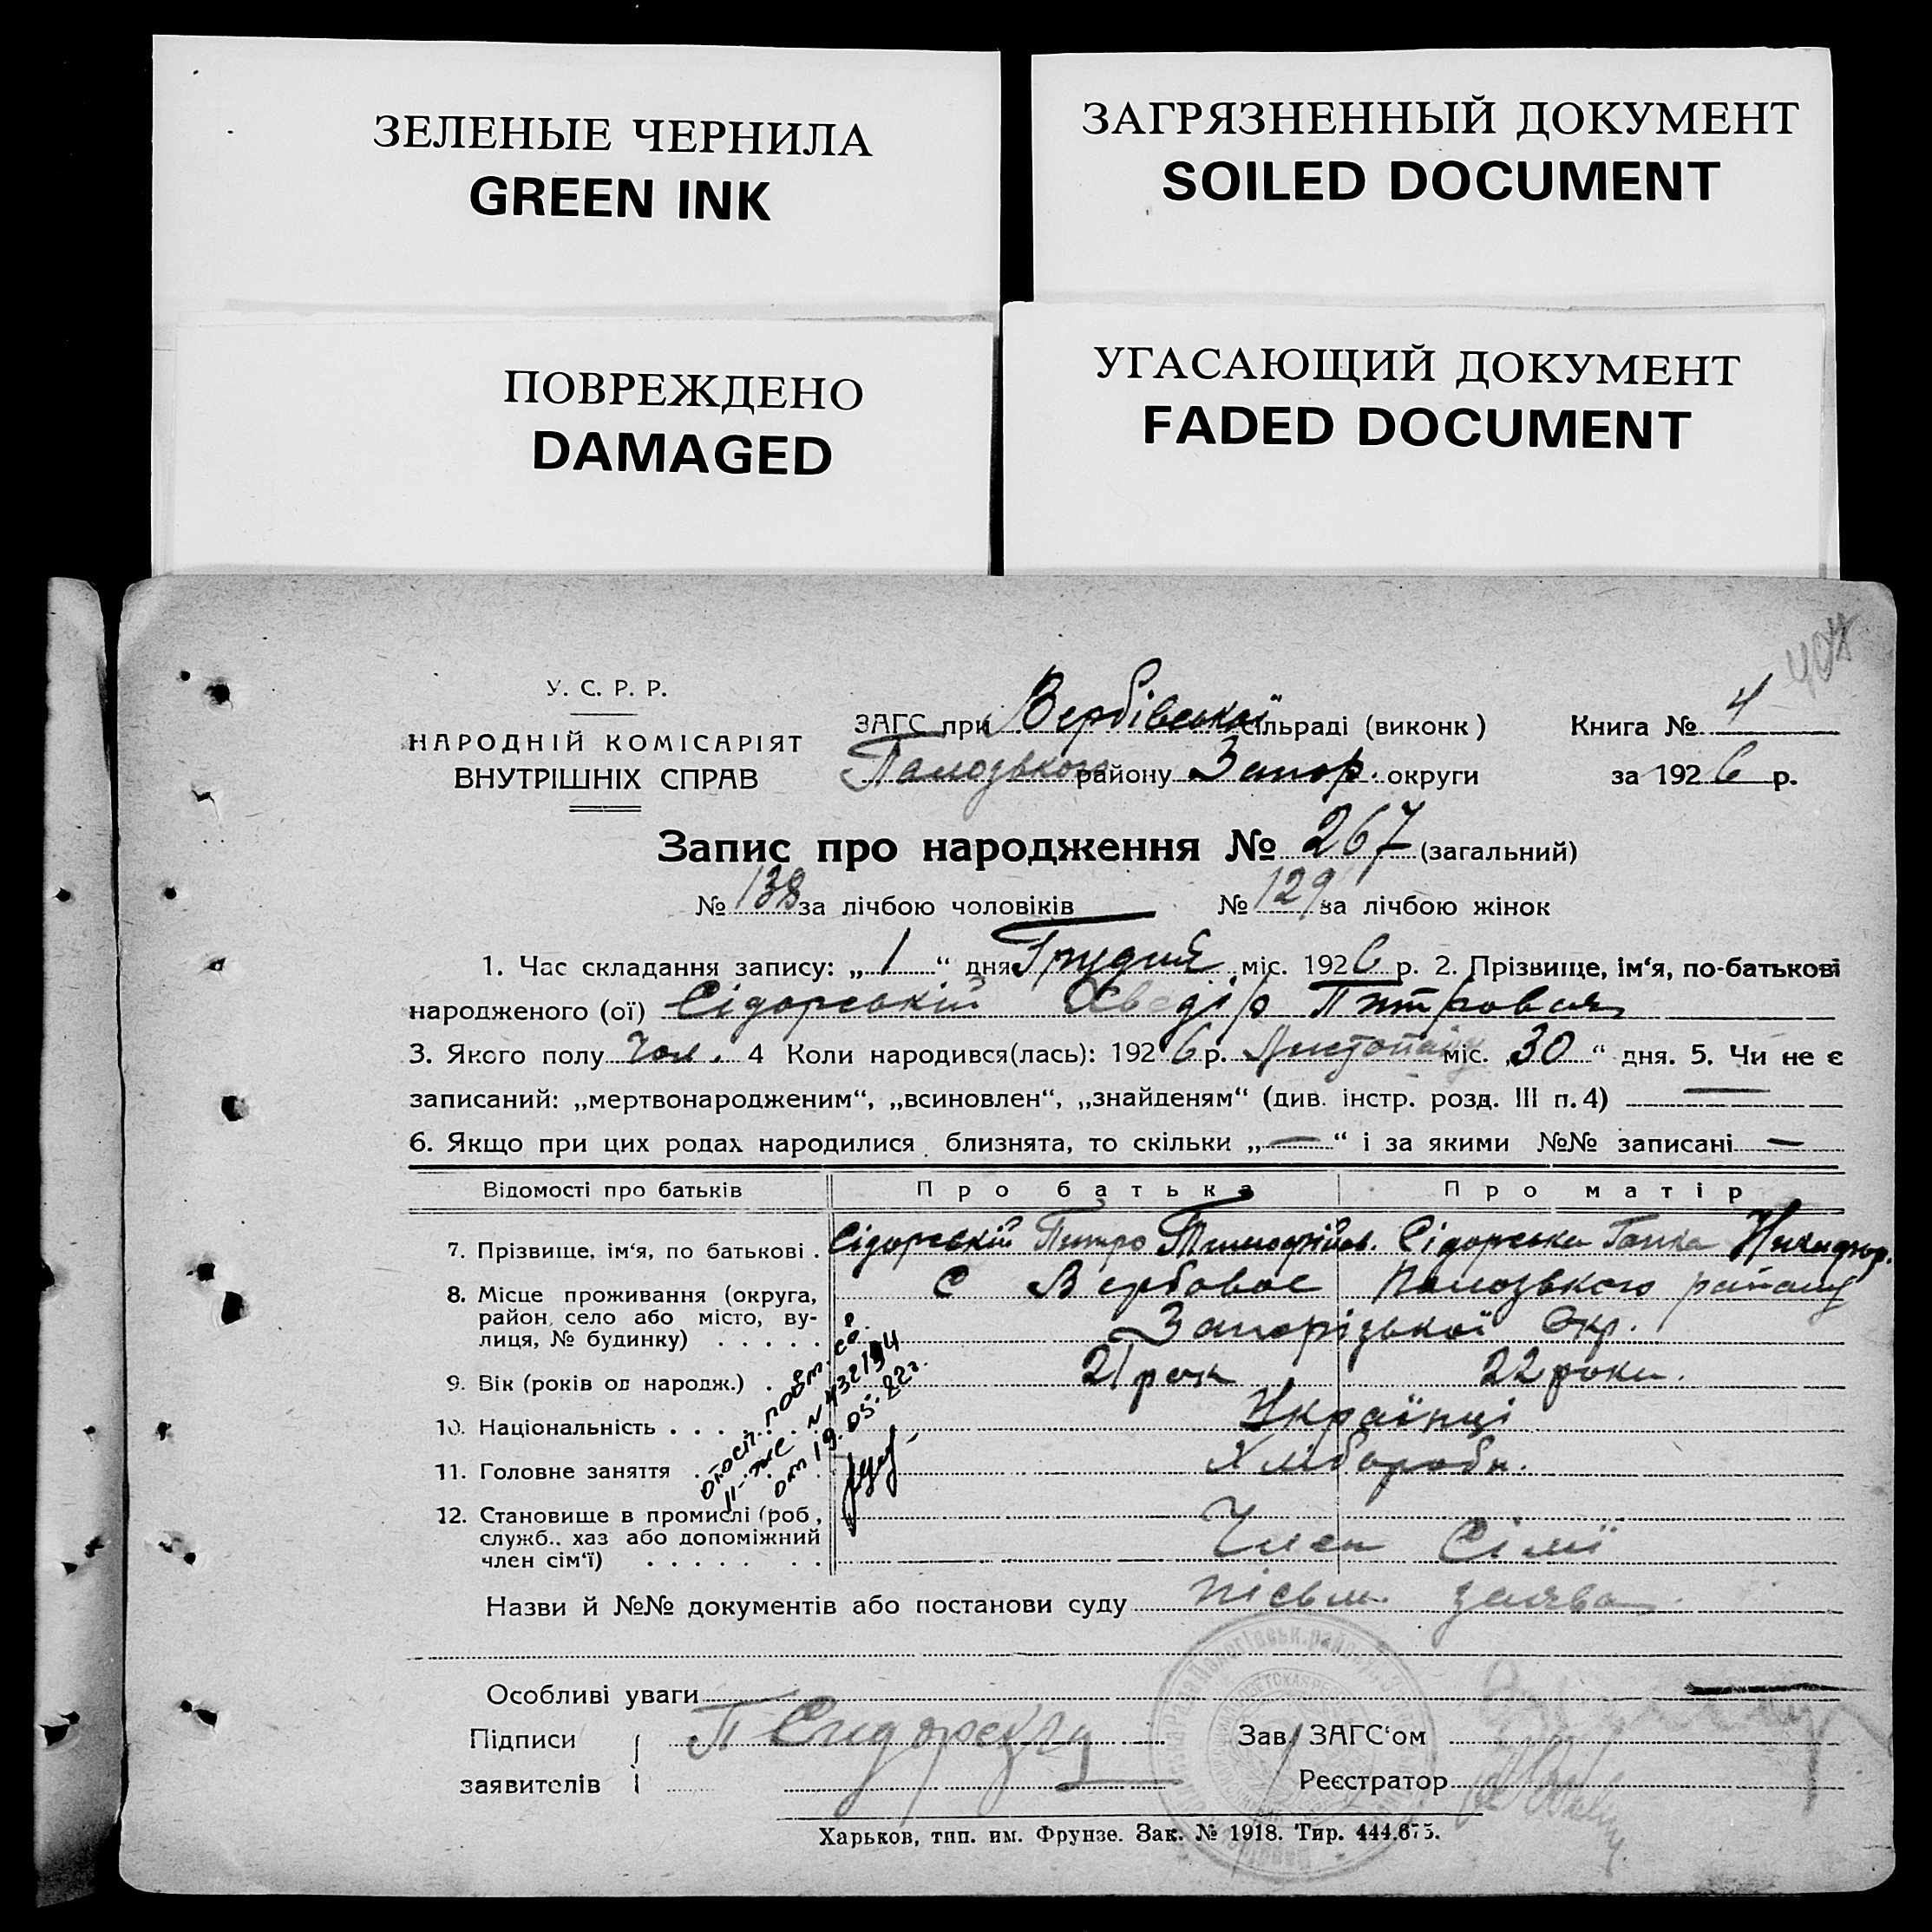 ЗЕЛЕНЫЕ ЧЕРНИЛА
GREEN INK
ЗАГРЯЗНЕННЫЙ ДОКУМЕНТ
SOILED DOCUMENT
ПОВРЕЖДЕНО
DAMAGED
УГАСАЮЩИЙ ДОКУМЕНТ
FADED DOCUMENT
У. С. Р. Р.
НАРОДНІЙ КОМІСАРІЯТ
ВНУТРІШНІХ СПРАВ
ЗАГС при Вербівської сільраді (виконк)
району Запор. округи
Книга № 4
за 1926 р.
Запис про народження № 267 (загальний)
№ 138 за лічбою чоловіків № 129 за лічбою жінок
1. Час складання запису: „1“ дня Грудня міс. 1926 р. 2. Прізвище, ім‘я, по-батькові
народженого (ої) Сідорській Хведір Питровия
3. Якого полу Чол. 4 Коли народився(лась): 1926 р. Листопаду міс. „30“ дня. 5. Чи не є
записаний: „мертвонародженим“, „всиновлен“, „знайденям“ (див. інстр. розд. III п. 4) —
6. Якщо при цих родах народилися близнята, то скільки „—“ і за якими №№ записані —
Відомості про батьків Про батька Про матір
7. Прізвище, ім‘я, по батькові . Сідорській Питро Тимофійов. Сідорська Ганка Никифор.
8. Місце проживання (округа, район, село або місто, вулиця, № будинку) . . . . . С Вербовое района
Запорізької Окр.
9. Вік (років од народж.) . 21 рок 22 роки.
10. Національність . . . . Українці
11. Головне заняття . Хлібороби.
12. Становище в промислі (роб, служб.. хаз або допоміжний член сім‘ї) . . . . . . . Член Сімї
от 19.05.82г.
Назви й №№ документів або постанови суду письм. заява
Особливі уваги
Підписи
заявителів
П Сидорскій
Зав. ЗАГС‘ом
Реєстратор
Харьков, тип. им. Фрунзе. Зак. № 1918. Тир. 444.675.